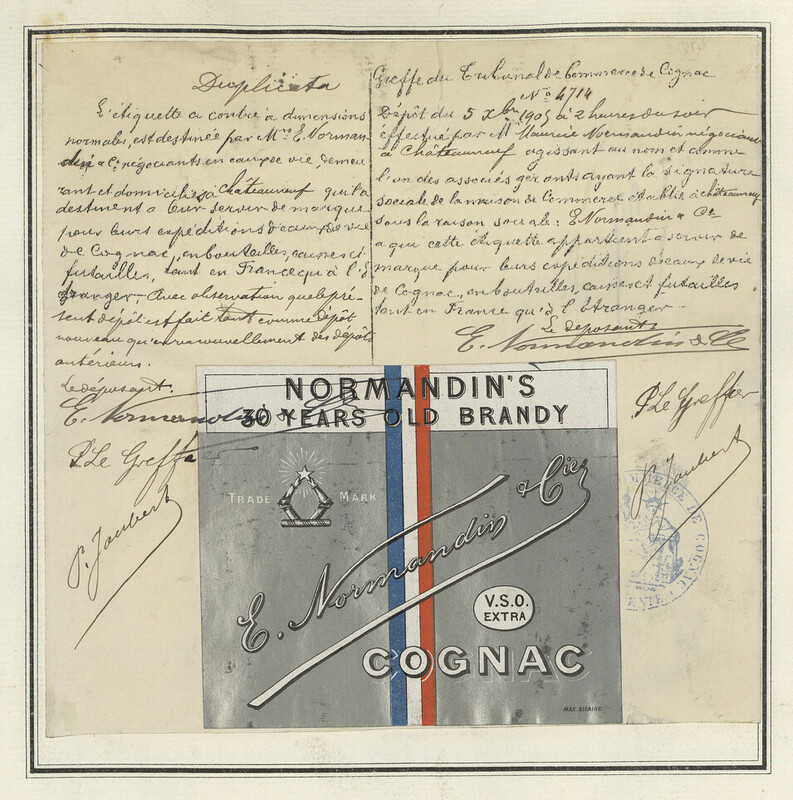 Duplicata
L'étiquette ci contre à dimensions
normales, est destinée par Mrs E. Norman-
din & Co négociants en eau de vie, demeu
rant et domiciliés à Châteauneuf qui la
destinent à leur servir de marque
pour leurs expéditions d'eaux de vie
de Cognac, en bouteilles, caisses et
futailles, tant en France qu'à l'É
tranger. Avec observation que le pré-
sent dépôt est fait tant comme dépôt
nouveau qu'en renouvellement des dépôts
antérieurs.
Le déposant.
E. Normandin & Cie
P. Le Greffier
P. Jaubert
Greffe du Tribunal de Commerce de Cognac
No 4714
Dépôt du 5 Xbre 1905 à 2 heures du soir
effectué par M Maurice Normandin négociant
à Châteauneuf agissant au nom et comme
l'un des associés gérants ayant la signature
sociale de la maison de Commerce établie à Châteauneuf
sous la raison sociale: E. Normandin & Cie
à qui cette étiquette appartient a servir de
marque pour leurs expéditions d'eaux de vie
de Cognac, en bouteilles, caisses et futailles
tant en France qu'à l'étranger.
Le déposant
E. Normandin & Cie
P. Le Greffier
P. Jaubert
DE COGNAC
NORMANDIN'S
30 YEARS OLD BRANDY
TRADE MARK
E. Normandin & Cie
V.S.O.
EXTRA
COGNAC